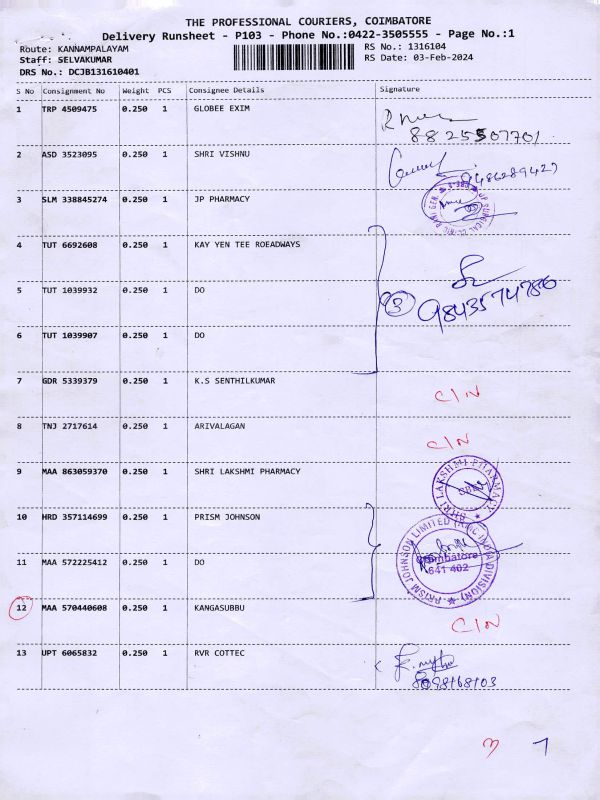 THE PROFESSIONAL COURIERS, COIMBATORE
Delivery Runsheet - P103 - Phone No.:0422-3505555 - Page No.:1
Route: KANNAMPALAYAM RS No.: 1316104
Staff: SELVAKUMAR RS Date: 03-Feb-2024
DRS No.: DCJB131610401
S No Consignment No Weight PCS Consignee Details Signature
1 TRP 4509475 0.250 1 GLOBEE EXIM
8825507701
2 ASD 3523095 0.250 1 SHRI VISHNU
3 SLM 338845274 0.250 1 JP PHARMACY
4 TUT 6692608 0.250 1 KAY YEN TEE ROEADWAYS
5 TUT 1039932 0.250 1 DO
3 9843574786
6 TUT 1039907 0.250 1 DO
7 GDR 5339379 0.250 1 K.S SENTHILKUMAR C/N
8 TNJ 2717614 0.250 1 ARIVALAGAN C/N
9 MAA 863059370 0.250 1 SHRI LAKSHMI PHARMACY SHRI LAKSHMI PHARMACY
10 HRD 357114699 0.250 1 PRISM JOHNSON
PRISM JOHNSON LIMITED (RMC INDIA DIVISION)
Coimbatore
641 402
11 MAA 572225412 0.250 1 DO
12 MAA 570440608 0.250 1 KANGASUBBU C/N
13 UPT 6065832 0.250 1 RVR COTTEC
8098168103
3 7